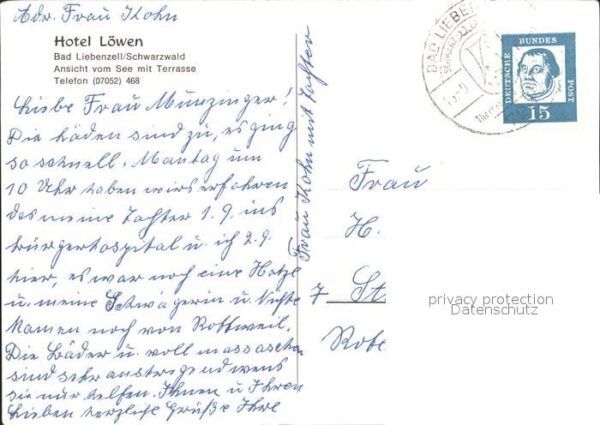 Adr. Frau Kohn
Hotel Löwen
Bad Liebenzell/Schwarzwald
Ansicht vom See mit Terrasse
Telefon (07052) 468
Liebe Frau Münzinger!
Die Läden sind zu, es ging
so schnell. Montag um
10 Uhr haben wirs erfahren
das meine Tochter 1.9. ins
Bürgerhospital u. ich 2.9.
hier, es war noch eine Hetze
u. meine Schwägerin u. Nichte
kamen noch von Rottweil.
Die Bäder u. voll massachen
sind sehr anstrengend wens
sie nur helfen. Ihnen u Ihren
Lieben herzliche Grüße Ihre
Frau Kohn mit Tochter
BAD LIEBEN
DEUTSCHE BUNDESPOST
15
Frau
H.
7 St
Robe
privacy protection
Datenschutz